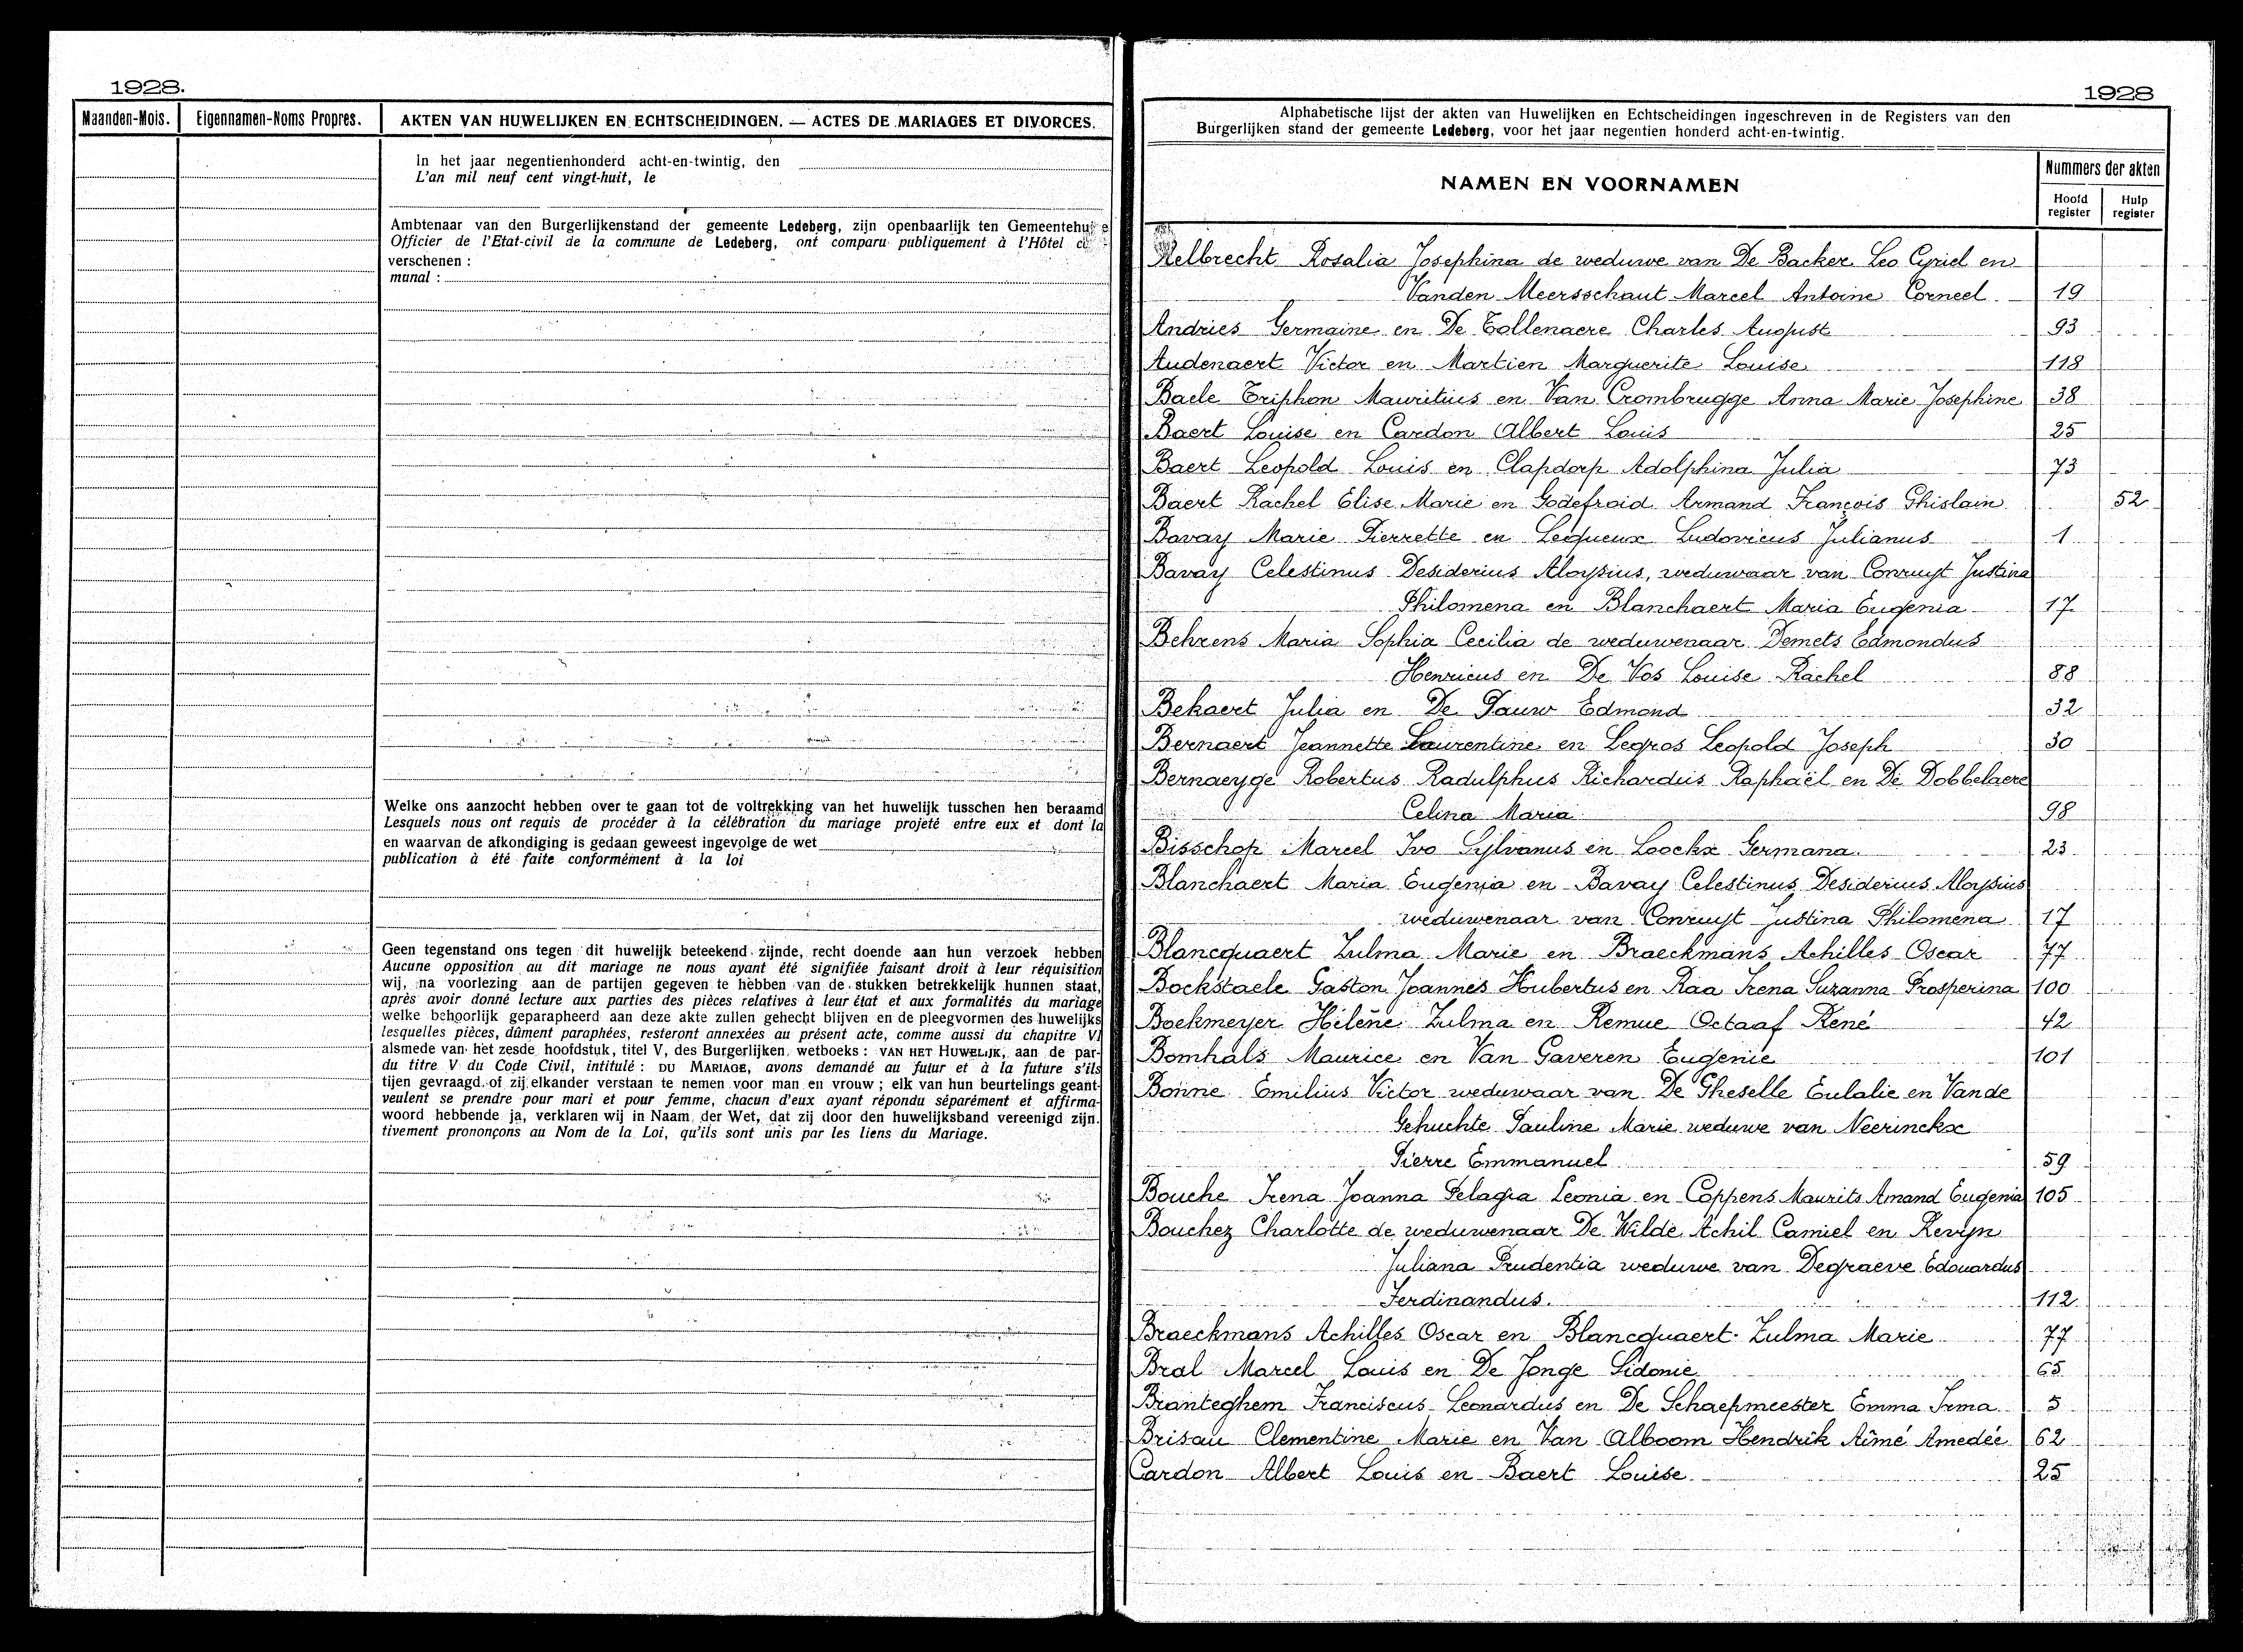 1928.
Maanden-Mois. Eigennamen-Noms Propres. AKTEN VAN HUWELIJKEN EN ECHTSCHEIDINGEN. — ACTES DE MARIAGES ET DIVORCES.
In het jaar negentienhonderd acht-en-twintig, den
L'an mil neuf cent vingt-huit, le
Ambtenaar van den Burgerlijkenstand der gemeente Ledeberg, zijn openbaarlijk ten Gemeentehu
Officier de l'Etat-civil de la commune de Ledeberg, ont comparu publiquement à l'Hôtel
verschenen :
munal :
Welke ons aanzocht hebben over te gaan tot de voltrekking van het huwelijk tusschen hen beraamd
Lesquels nous ont requis de procéder à la célébration du mariage projeté entre eux et dont la
en waarvan de afkondiging is gedaan geweest ingevolge de wet
publication à été faite conformément à la loi
Geen tegenstand ons tegen dit huwelijk beteekend zijnde, recht doende aan hun verzoek hebben
Aucune opposition au dit mariage ne nous ayant été signifiée faisant droit à leur réquisition
wij, na voorlezing aan de partijen gegeven te hebben van de stukken betrekkelijk hunnen staat,
après avoir donné lecture aux parties des pièces relatives à leur état et aux formalités du mariage
welke behoorlijk geparapheerd aan deze akte zullen gehecht blijven en de pleegvormen des huwelijks
lesquelles pièces, dûment paraphées, resteront annexées au présent acte, comme aussi du chapitre VI
alsmede van het zesde hoofdstuk, titel V, des Burgerlijken wetboeks : VAN HET HUWELIJK, aan de par-
du titre V du Code Civil, intitulé : DU MARIAGE, avons demandé au futur et à la future s'ils
tijen gevraagd of zij elkander verstaan te nemen voor man en vrouw ; elk van hun beurtelings geant-
veulent se prendre pour mari et pour femme, chacun d'eux ayant répondu séparément et affirma-
woord hebbende ja, verklaren wij in Naam der Wet, dat zij door den huwelijksband vereenigd zijn.
tivement prononçons au Nom de la Loi, qu'ils sont unis par les liens du Mariage.
1928
Alphabetische lijst der akten van Huwelijken en Echtscheidingen ingeschreven in de Registers van den
Burgerlijken stand der gemeente Ledeberg, voor het jaar negentien honderd acht-en-twintig.
NAMEN EN VOORNAMEN Nummers der akten
Hoofd register Hulp register
Aelbrecht Rosalia Josephina de weduwe van De Backer Leo Cyriel en
Vanden Meersschaut Marcel Antoine Corneel 19
Andries Germaine en De Tollenaere Charles August 93
Audenaert Victor en Martien Marguerite Louise 118
Baele Triphon Mauritius en Van Crombrugge Anna Marie Josephine 38
Baert Louise en Cardon Albert Louis 25
Baert Leopold Louis en Clapdorp Adolphina Julia 73
Baert Rachel Elise Marie en Godefroid Armand François Ghislain 52
Bavay Marie Pierrette en Lequeux Ludovicus Julianus 1
Bavay Celestinus Desiderius Aloysius, weduwaar van Conruyt Justina
Philomena en Blanchaert Maria Eugenia 17
Behrens Maria Sophia Cecilia de weduwenaar Demets Edmondus
Henricus en De Vos Louise Rachel 88
Bekaert Julia en De Pauw Edmond 32
Bernaert Jeannette Laurentine en Legros Leopold Joseph 30
Bernaeyge Robertus Radulphus Richardus Raphaël en De Dobbelaere
Celina Maria 98
Bisschop Marcel Ivo Sylvanus en Loockx Germana 23
Blanchaert Maria Eugenia en Bavay Celestinus Desiderius Aloysius
weduwenaar van Conruyt Justina Philomena 17
Blancquaert Zulma Marie en Braeckmans Achilles Oscar 77
Bockstaele Gaston Joannes Hubertus en Raa Irena Suzanna Prosperina 100
Boekmeyer Hélène Zulma en Remue Octaaf René 42
Bomhals Maurice en Van Gaveren Eugenie 101
Bonne Emilius Victor weduwaar van De Gheselle Eulalie en Vande
Gehuchte Pauline Marie weduwe van Neerinckx
Pierre Emmanuel 59
Bouche Irena Joanna Pelagia Leonia en Coppens Maurits Amand Eugenia 105
Bouchez Charlotte de weduwenaar De Wilde Achil Camiel en Revijn
Juliana Prudentia weduwe van Degraeve Edouardus
Ferdinandus. 112
Braeckmans Achilles Oscar en Blancquaert Zulma Marie 77
Bral Marcel Louis en De Jonge Sidonie 65
Branteghem Franciscus Leonardus en De Schaepmeester Emma Irma 5
Brisau Clementine Marie en Van Alboom Hendrik Aimé Amedée 62
Cardon Albert Louis en Baert Louise 25